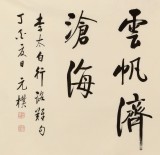 雲帆濟
滄海
李太白行路難句
丁亥夏日 元樸